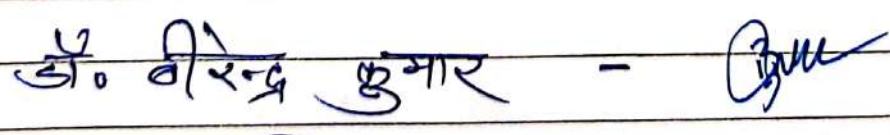 डॉ. बीरेन्द्र कुमार -